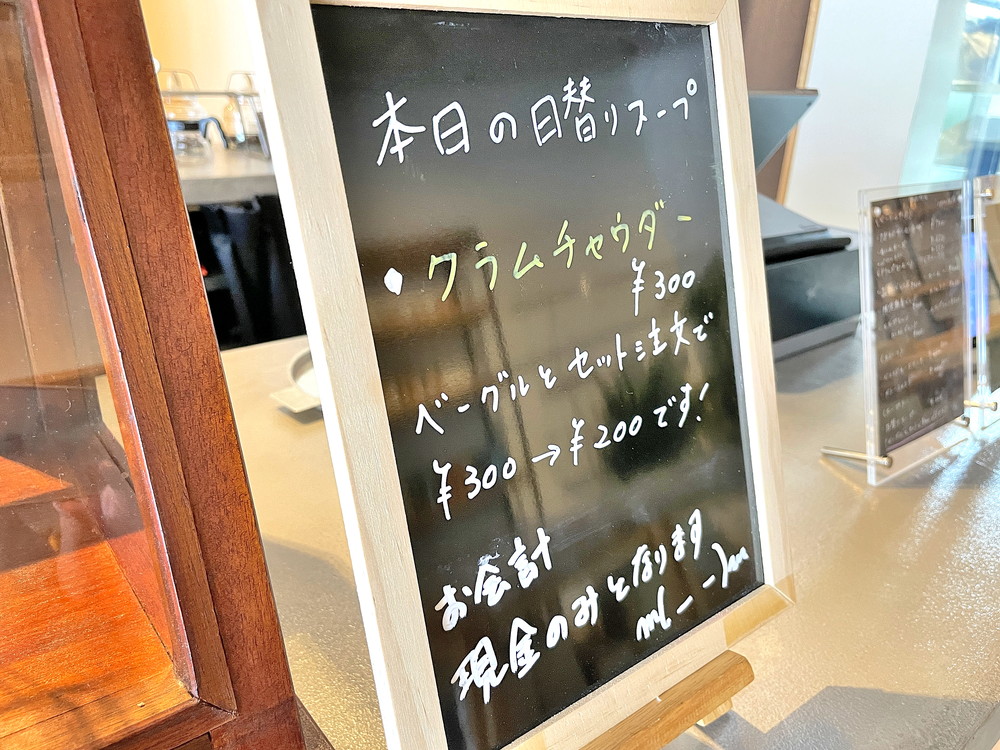 本日の日替りスープ
● クラムチャウダー
¥300
ベーグルとセット注文で
¥300→¥200です!
お会計
現金のみとなります
m(_ _)m